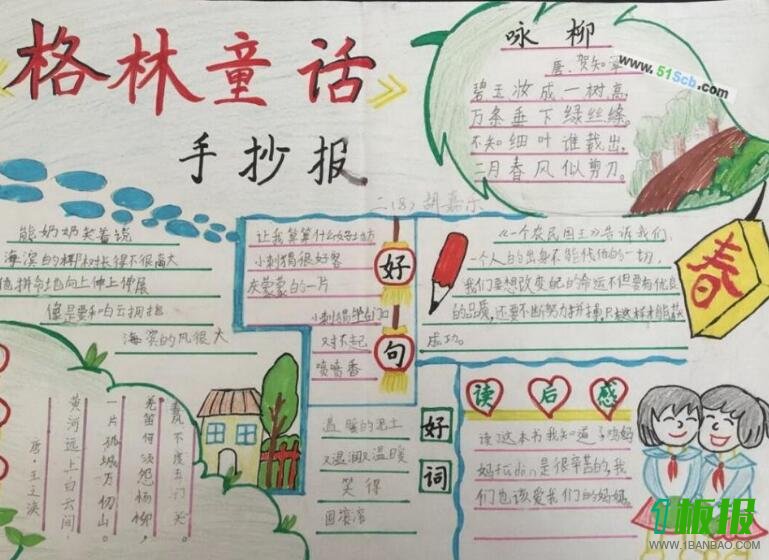 格林童话
手抄报
二(8) 胡嘉乐
咏柳
唐·贺知章
碧玉妆成一树高,
万条垂下绿丝绦。
不知细叶谁裁出,
二月春风似剪刀。
www.51Scb.com
熊奶奶笑着说
海滨的椰树长得不很高大
地向上伸上伸展
像是要和白云拥抱
海滨的风很大
让我算算什么好
小刺猬很好客
灰蒙蒙的一片
小刺猬
对不起
喷喷香
好句
《一个农民国王》告诉我们,
一个人的出身不能代他的一切,
我们要想改变的命运不但要有优良
的品质,还要不断努力拼搏,只这样才能获
成功。
春
春风不度玉门关。
羌笛何须怨杨柳,
一片孤城万仞山。
黄河远上白云间,
唐·王之涣
温暖的泥土
又温润又温暖
笑得
圆滚滚
好词
读后感
读这本书我知道了鸡妈
妈fu dan是很辛苦的,我
们也该爱我们的妈妈。
板报
WWW.1BANBAO.COM